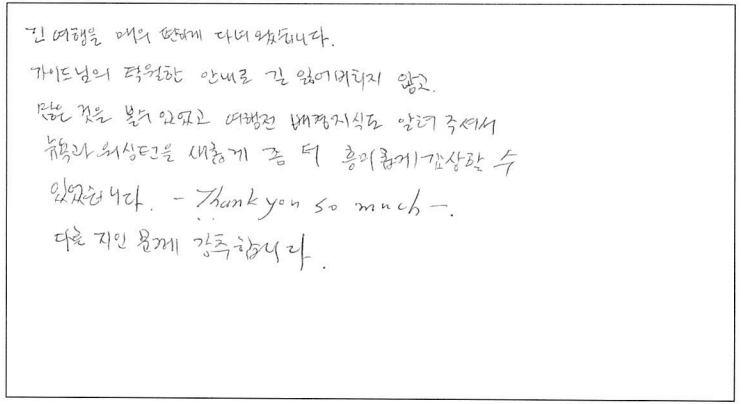 긴 여행을 매우 편하게 다녀왔습니다.
가이드님의 탁월한 안내로 길 잃어버리지 않고.
많은 것을 볼수 있었고 여행전 배경지식도 알려 주셔서
뉴욕과 워싱턴을 새롭게 좀 더 흥미롭게 감상할 수
있었습니다. - Thank you so much -.
다른 지인 분께 강추합니다.